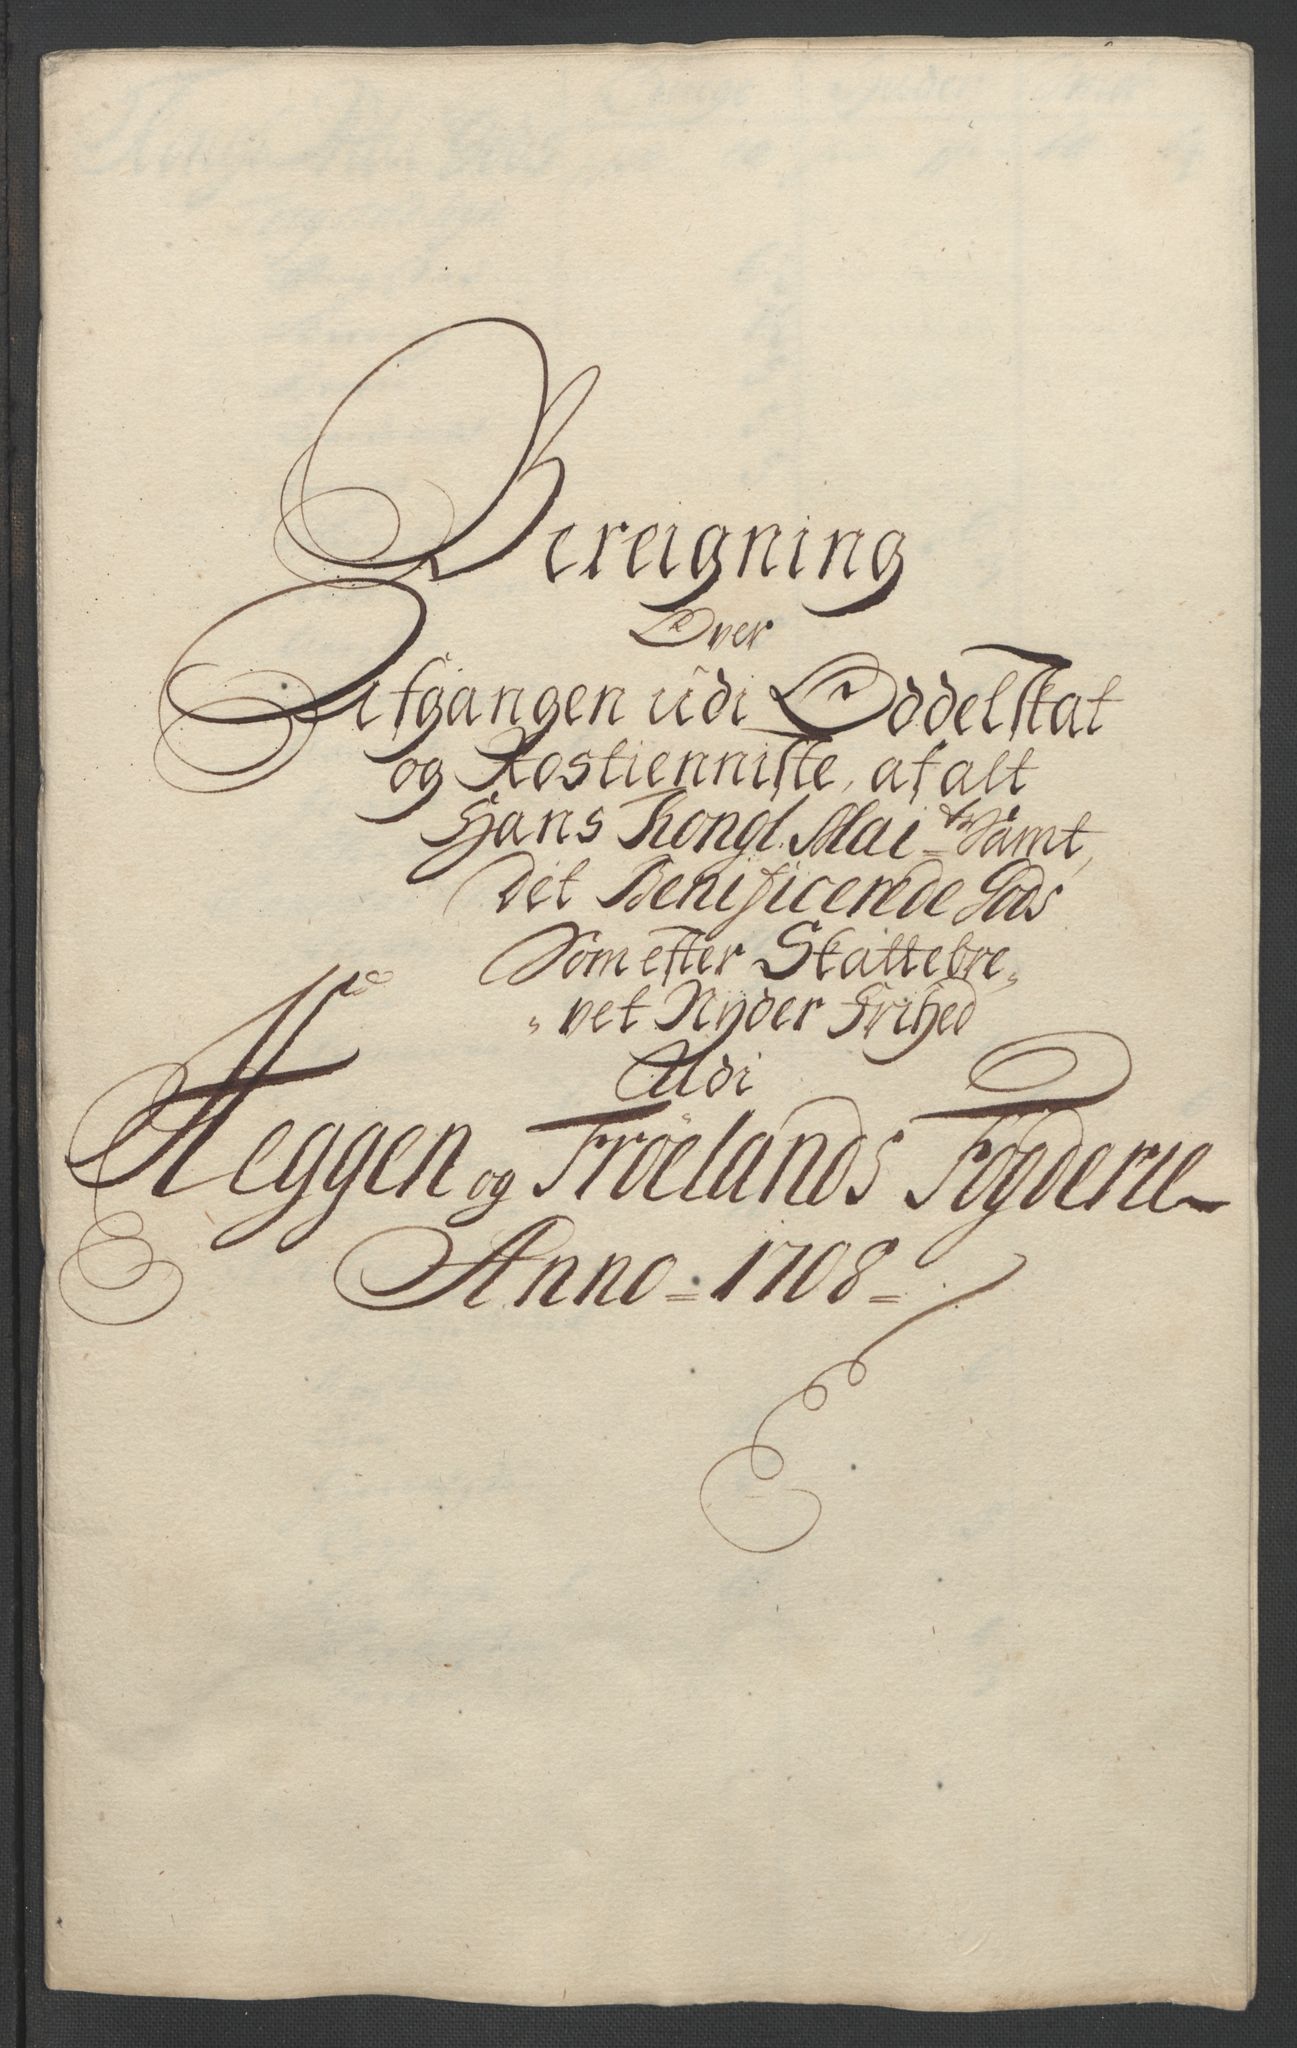 Bereigning
Over
Afgangen udi Oddelskat
og Rostienniste, af alt
Hans Kongl. Mai.ts Samt,
det Benificerede Gods
Som efter Skattebre„
„vet Nyder Frihed
Udi
Heggen og Frøelands Fogderie
Anno = 1708 =